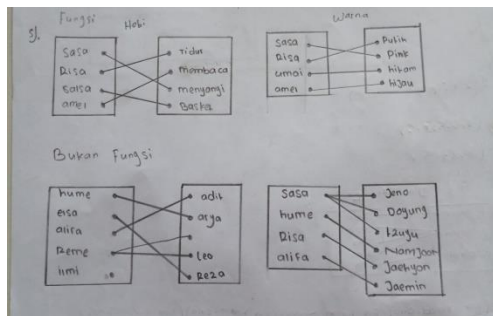 5).
Fungsi
Hobi
Sasa
Risa
Salsa
amel
tidur
membaca
menyanyi
Basket
Warna
Sasa
Risa
umai
amel
Putih
Pink
hitam
hijau
Bukan Fungsi
hume
elsa
alifa
Reme
ilmi
adit
arga
Leo
Reza
Sasa
hume
Risa
alifa
Jeno
Doyung
Namjoon
Jaehyon
Jaemin